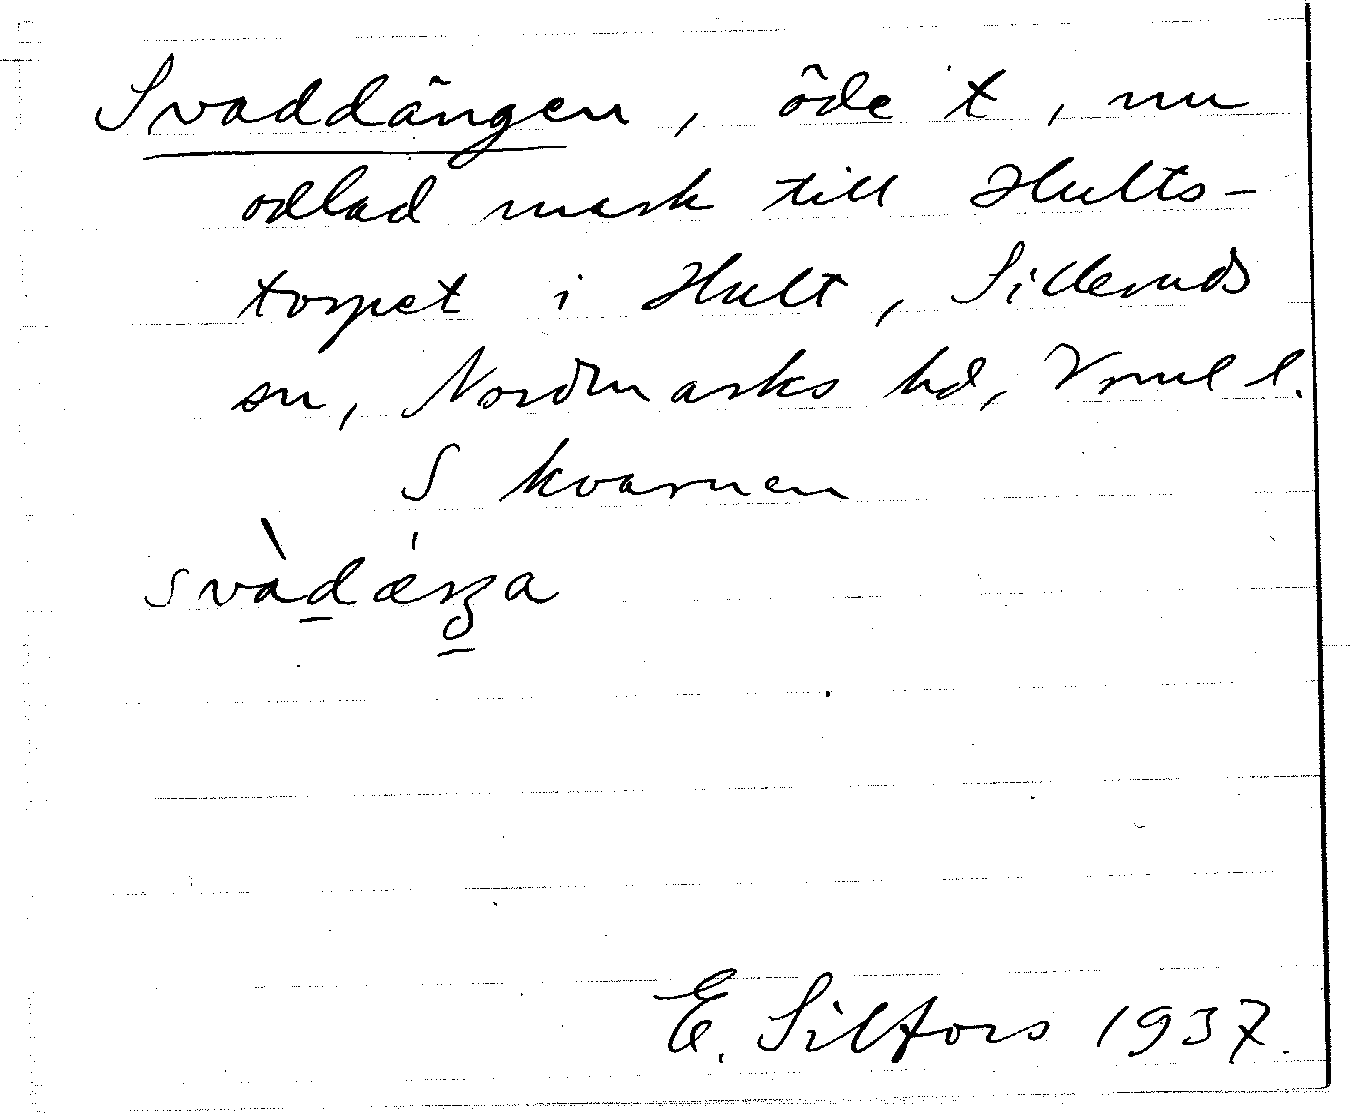 Svaddängen, öde t, nu
odlad mark till Hults-
torpet i Hult, Silleruds
sn, Nordmarks hd, Vrml l.
S kvarnen
svàdæ̀ŋa
E. Silfors 1937.